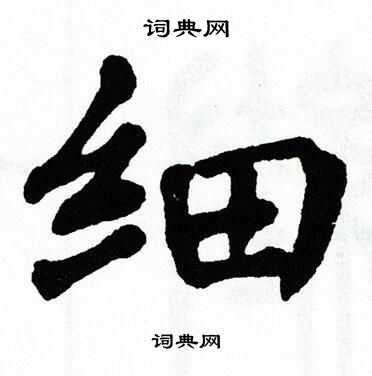 词典网
细
词典网